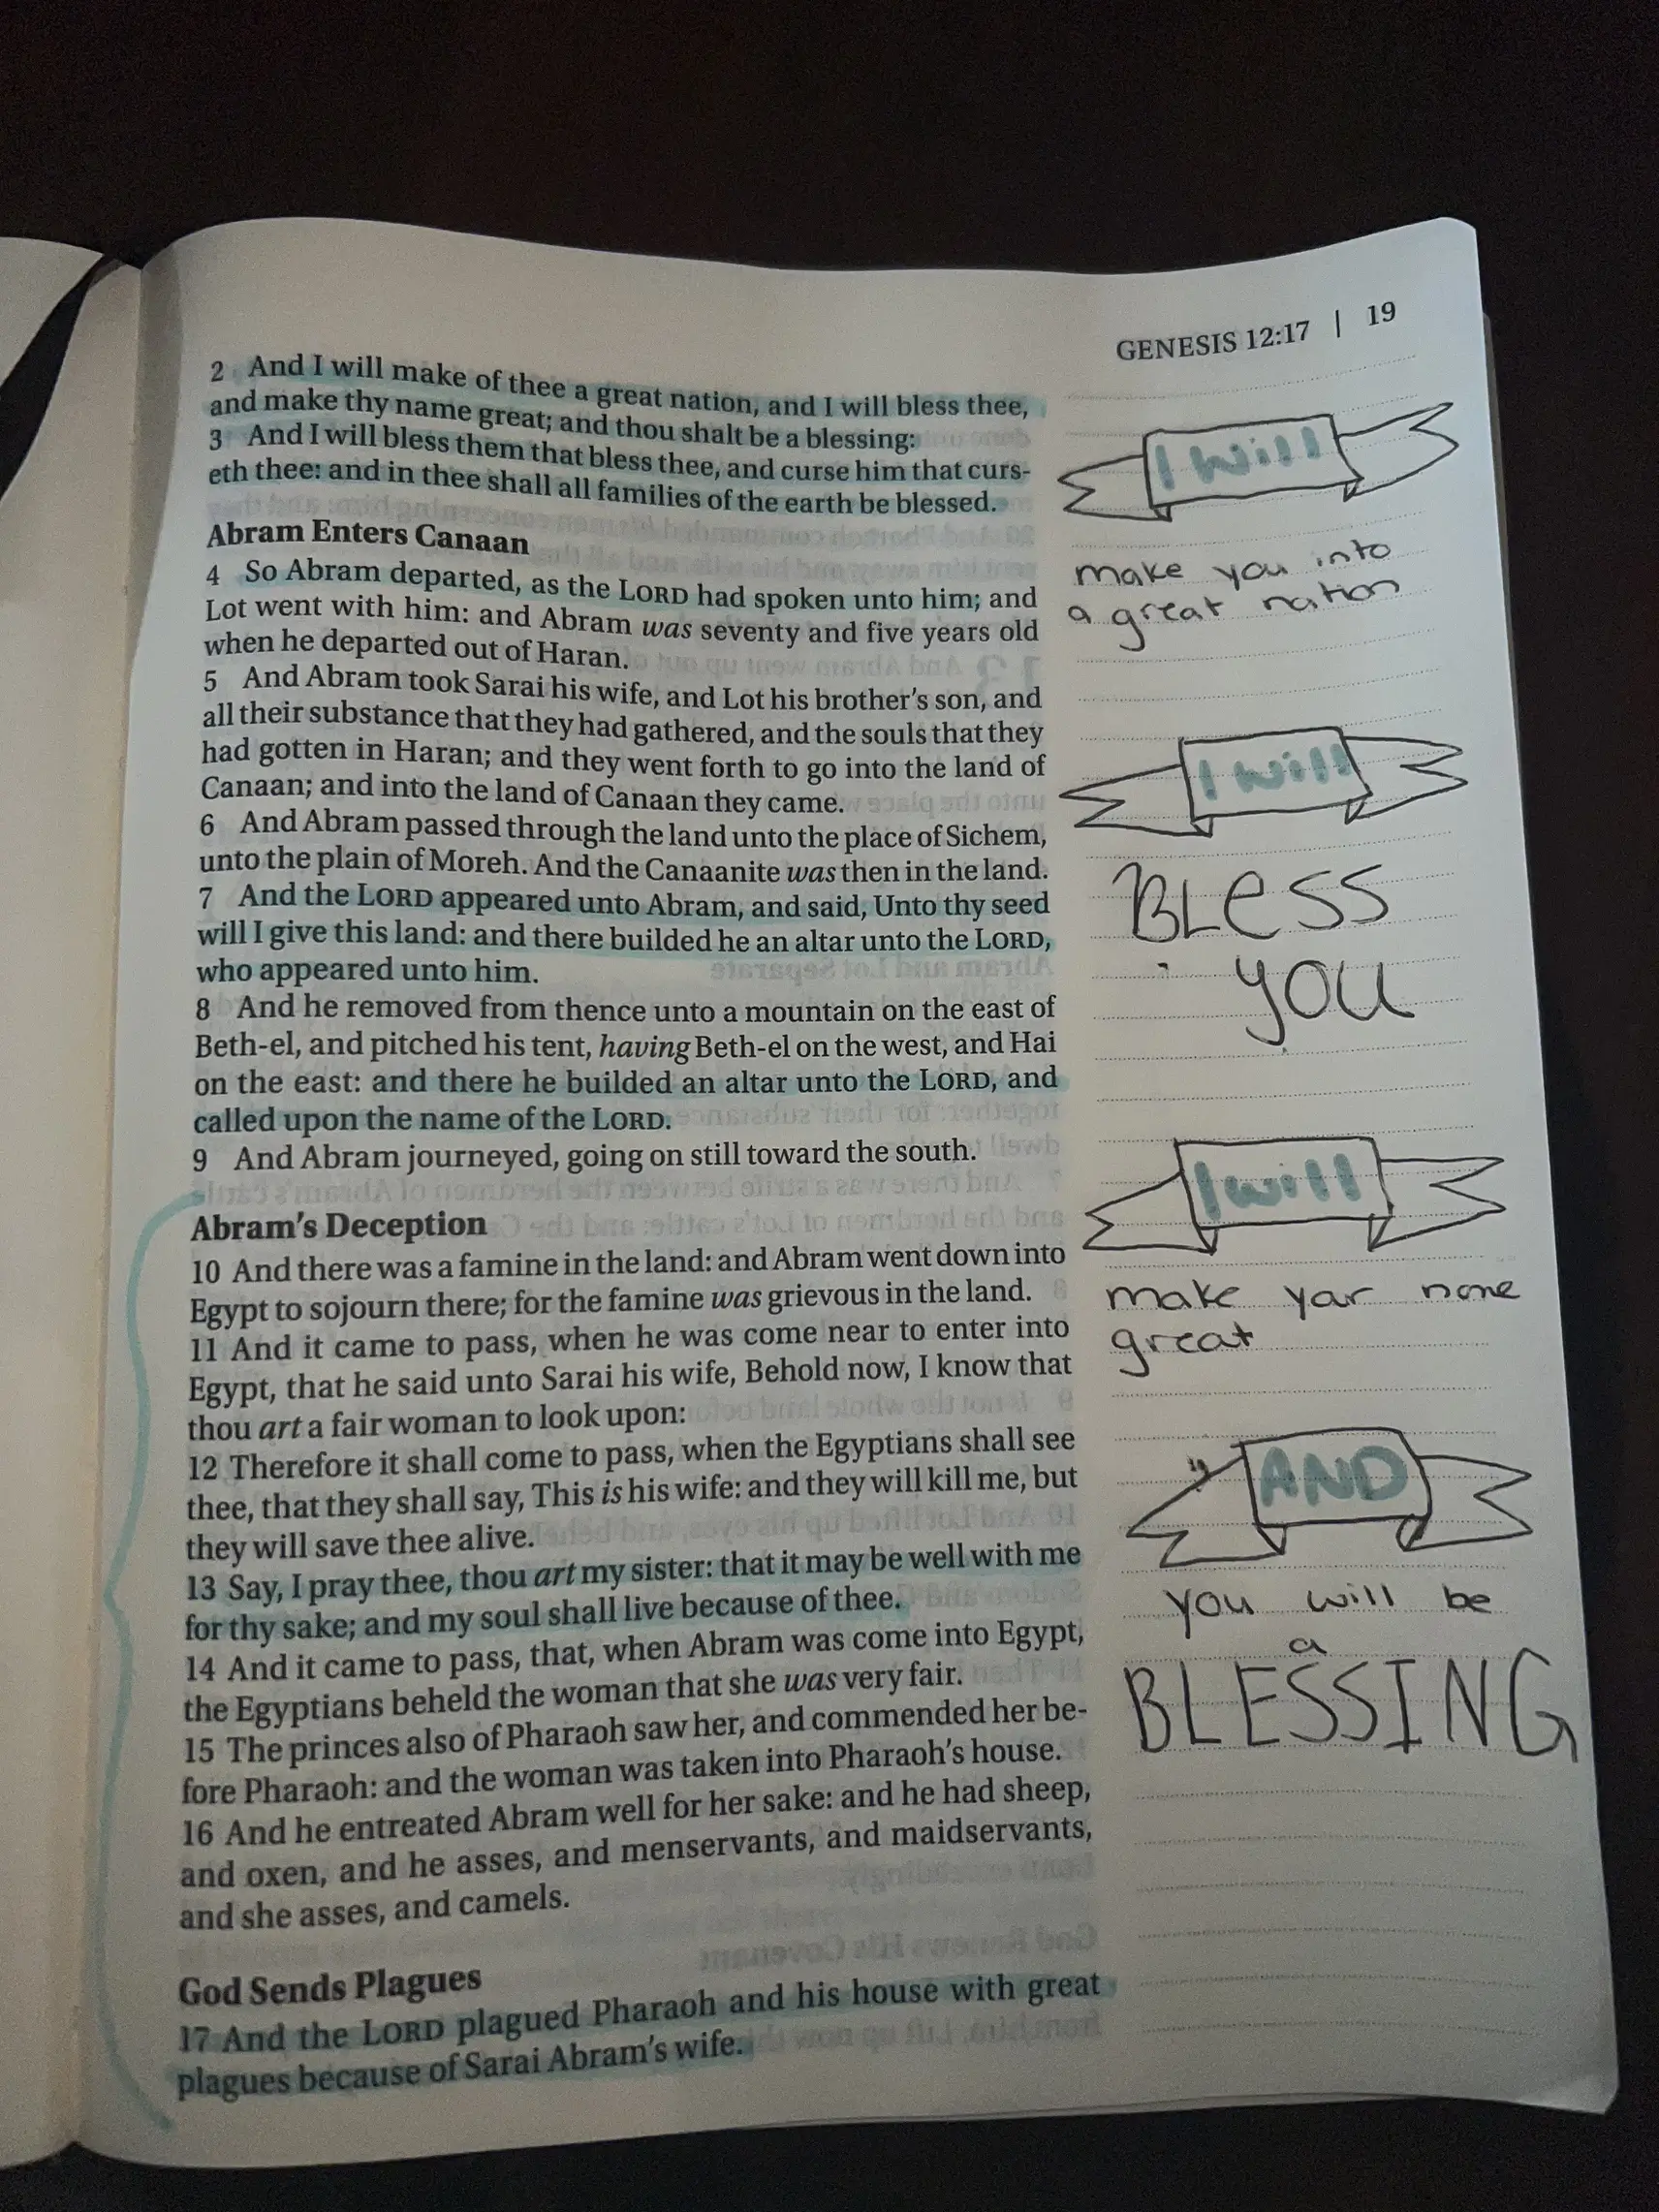 GENESIS 12:17 | 19
2 And I will make of thee a great nation, and I will bless thee,
and make thy name great; and thou shalt be a blessing:
3 And I will bless them that bless thee, and curse him that curs-
eth thee: and in thee shall all families of the earth be blessed.
Abram Enters Canaan
4 So Abram departed, as the LORD had spoken unto him; and
Lot went with him: and Abram was seventy and five years old
when he departed out of Haran.
5 And Abram took Sarai his wife, and Lot his brother's son, and
all their substance that they had gathered, and the souls that they
had gotten in Haran; and they went forth to go into the land of
Canaan; and into the land of Canaan they came.
6 And Abram passed through the land unto the place of Sichem,
unto the plain of Moreh. And the Canaanite was then in the land.
7 And the LORD appeared unto Abram, and said, Unto thy seed
will I give this land: and there builded he an altar unto the LORD,
who appeared unto him.
8 And he removed from thence unto a mountain on the east of
Beth-el, and pitched his tent, having Beth-el on the west, and Hai
on the east: and there he builded an altar unto the LORD, and
called upon the name of the LORD.
9 And Abram journeyed, going on still toward the south.
Abram's Deception
10 And there was a famine in the land: and Abram went down into
Egypt to sojourn there; for the famine was grievous in the land.
11 And it came to pass, when he was come near to enter into
Egypt, that he said unto Sarai his wife, Behold now, I know that
thou art a fair woman to look upon:
12 Therefore it shall come to pass, when the Egyptians shall see
thee, that they shall say, This is his wife: and they will kill me, but
they will save thee alive.
13 Say, I pray thee, thou art my sister: that it may be well with me
for thy sake; and my soul shall live because of thee.
14 And it came to pass, that, when Abram was come into Egypt,
the Egyptians beheld the woman that she was very fair.
15 The princes also of Pharaoh saw her, and commended her be-
fore Pharaoh: and the woman was taken into Pharaoh's house.
16 And he entreated Abram well for her sake: and he had sheep,
and oxen, and he asses, and menservants, and maidservants,
and she asses, and camels.
God Sends Plagues
17 And the LORD plagued Pharaoh and his house with great
plagues because of Sarai Abram's wife.
I will
make you into
a great nation
I will
BLESS
YOU
I will
make your name
great
AND
you will be
a
BLESSING